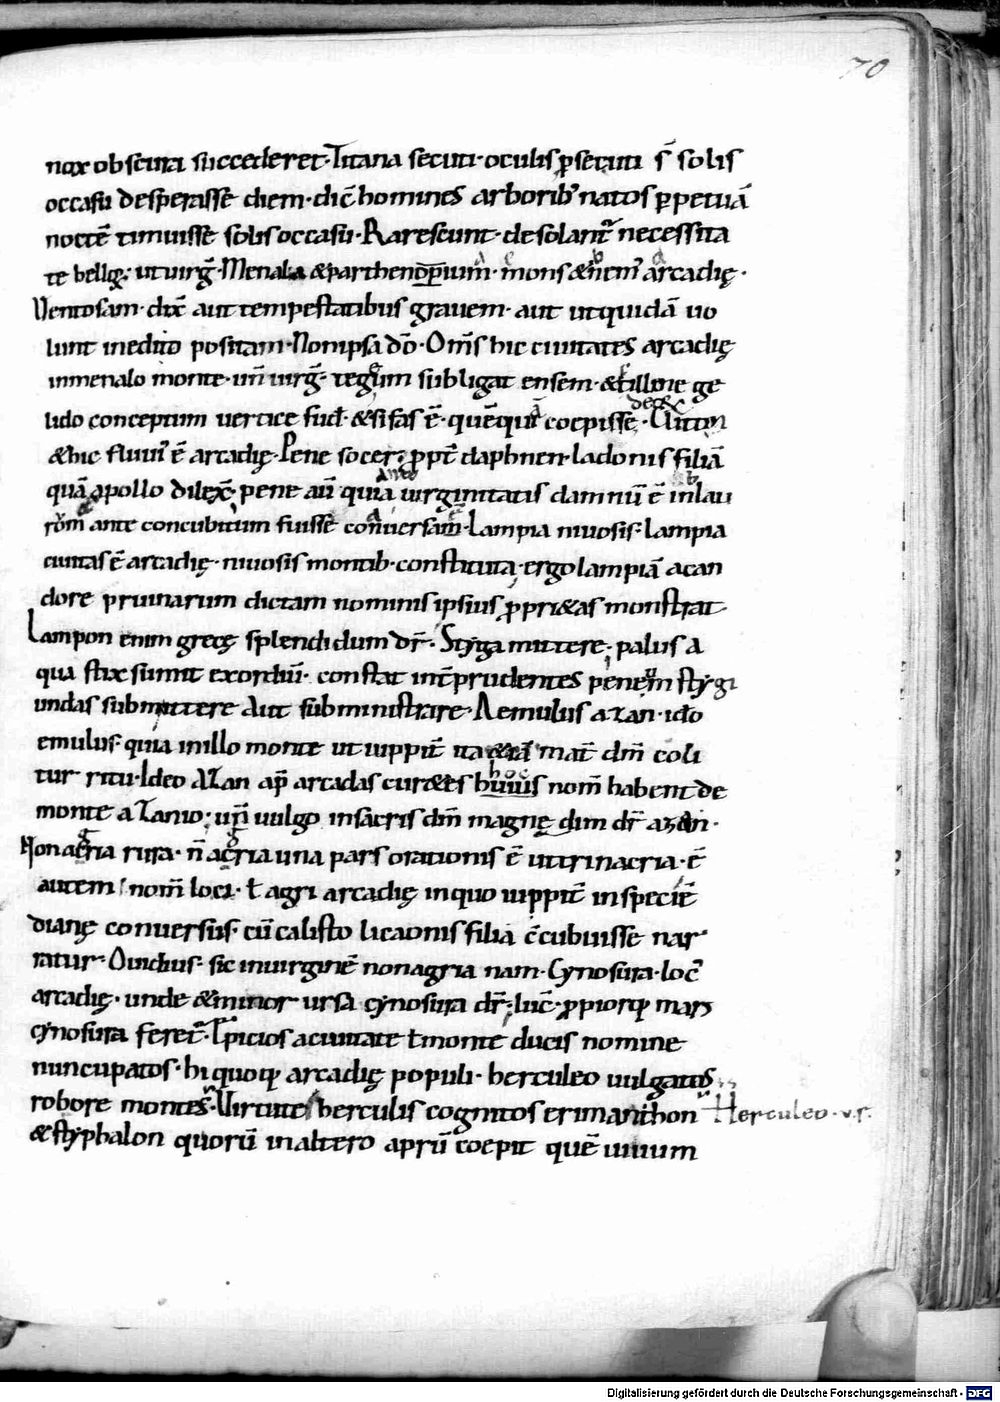 70
nox obscura succederet· Titana secuti· oculis ꝑsecuti s̄ solis
occasu desperasse diem· dic̄ homines arborib' natos ꝑpetuā
noctē timuisse solis occasu· Rarescunt· desolant̄ necessita
te bellę· ut uirḡ· Menala & parthenopium· mons & nem' arcadię·
Ventosam· dix̄ aut tempestatibus grauem· aut ut quidā uo
lunt in edito positam· Non ipsa dō· Om̄s hic ciuitates arcadię
in menalo monte· un̄ uirḡ· tegeum subligat ensem· & cillene ge
lido conceptum uertice fud̄· & si fas ē· quēque coepisse· Cliton
& hic fluui' ē arcadię· Pene socer· ꝓpt̄ daphnen ladonis filiā
quā apollo dilex̄· pene aū quia uirginitatis damnū ē in lau
rōm ante concubitum fuisse conuersam· Lampia niuosis· Lampia
ciuitas ē arcadię· niuosis montib· constituta· ergo lampiā a can
dore pruinarum dictam nominis ipsius ꝓpri&as monstrat·
Lampon enim grecę splendidum dr̄· Styga mittere· palus a
qua stix sumit exordiū· constat int̄ prudentes peneum stygi
undas submittere aut subministrare· Aemulus azan· ido
emulus· quia in illo monte ut iuppit̄ ita & mat̄ dm̄ coli
tur ritu· Ideo azan ap̄ arcadas cur&es huius nom̄ habent de
monte azanio· un̄ uulgo in sacris dm̄ magnę dim dr̄ azan·
Nonacria rura· n̄ acria una pars orationis ē ut trinacria· ē
autem nom̄ loci· ł agri arcadię in quo iuppit̄ in speciē
dianę conuersus· cū calisto licaonis filia c̄cubuisse nar
ratur· Ouidius· sic in uirginē nonagria nam· Cynosura· loc'
arcadię· unde & minor ursa cynosura dr̄· luc̄· ꝓpiorq mars
cynosura feret̄· Tꝑicios a ciuitate ł monte ducis nomine
nuncupatos· hi quoq arcadię populi· herculeo uulgatus
robore montes· Virtute herculis cognitos erimanthon Herculeo· v.r.
& styphalon quorū in altero aprū coepit quē uiuum
Digitalisierung gefördert durch die Deutsche Forschungsgemeinschaft - DFG